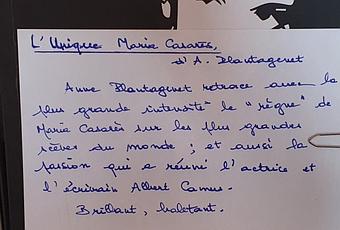 L'Unique Maria Casarès,
d'A. Plantagenet
Anne Plantagenet retrace avec la
plus grande intensité le "règne" de
Maria Casarès sur les plus grandes
scènes du monde ; et aussi la
passion qui a réuni l'actrice et
l'écrivain Albert Camus.
Brillant, haletant.